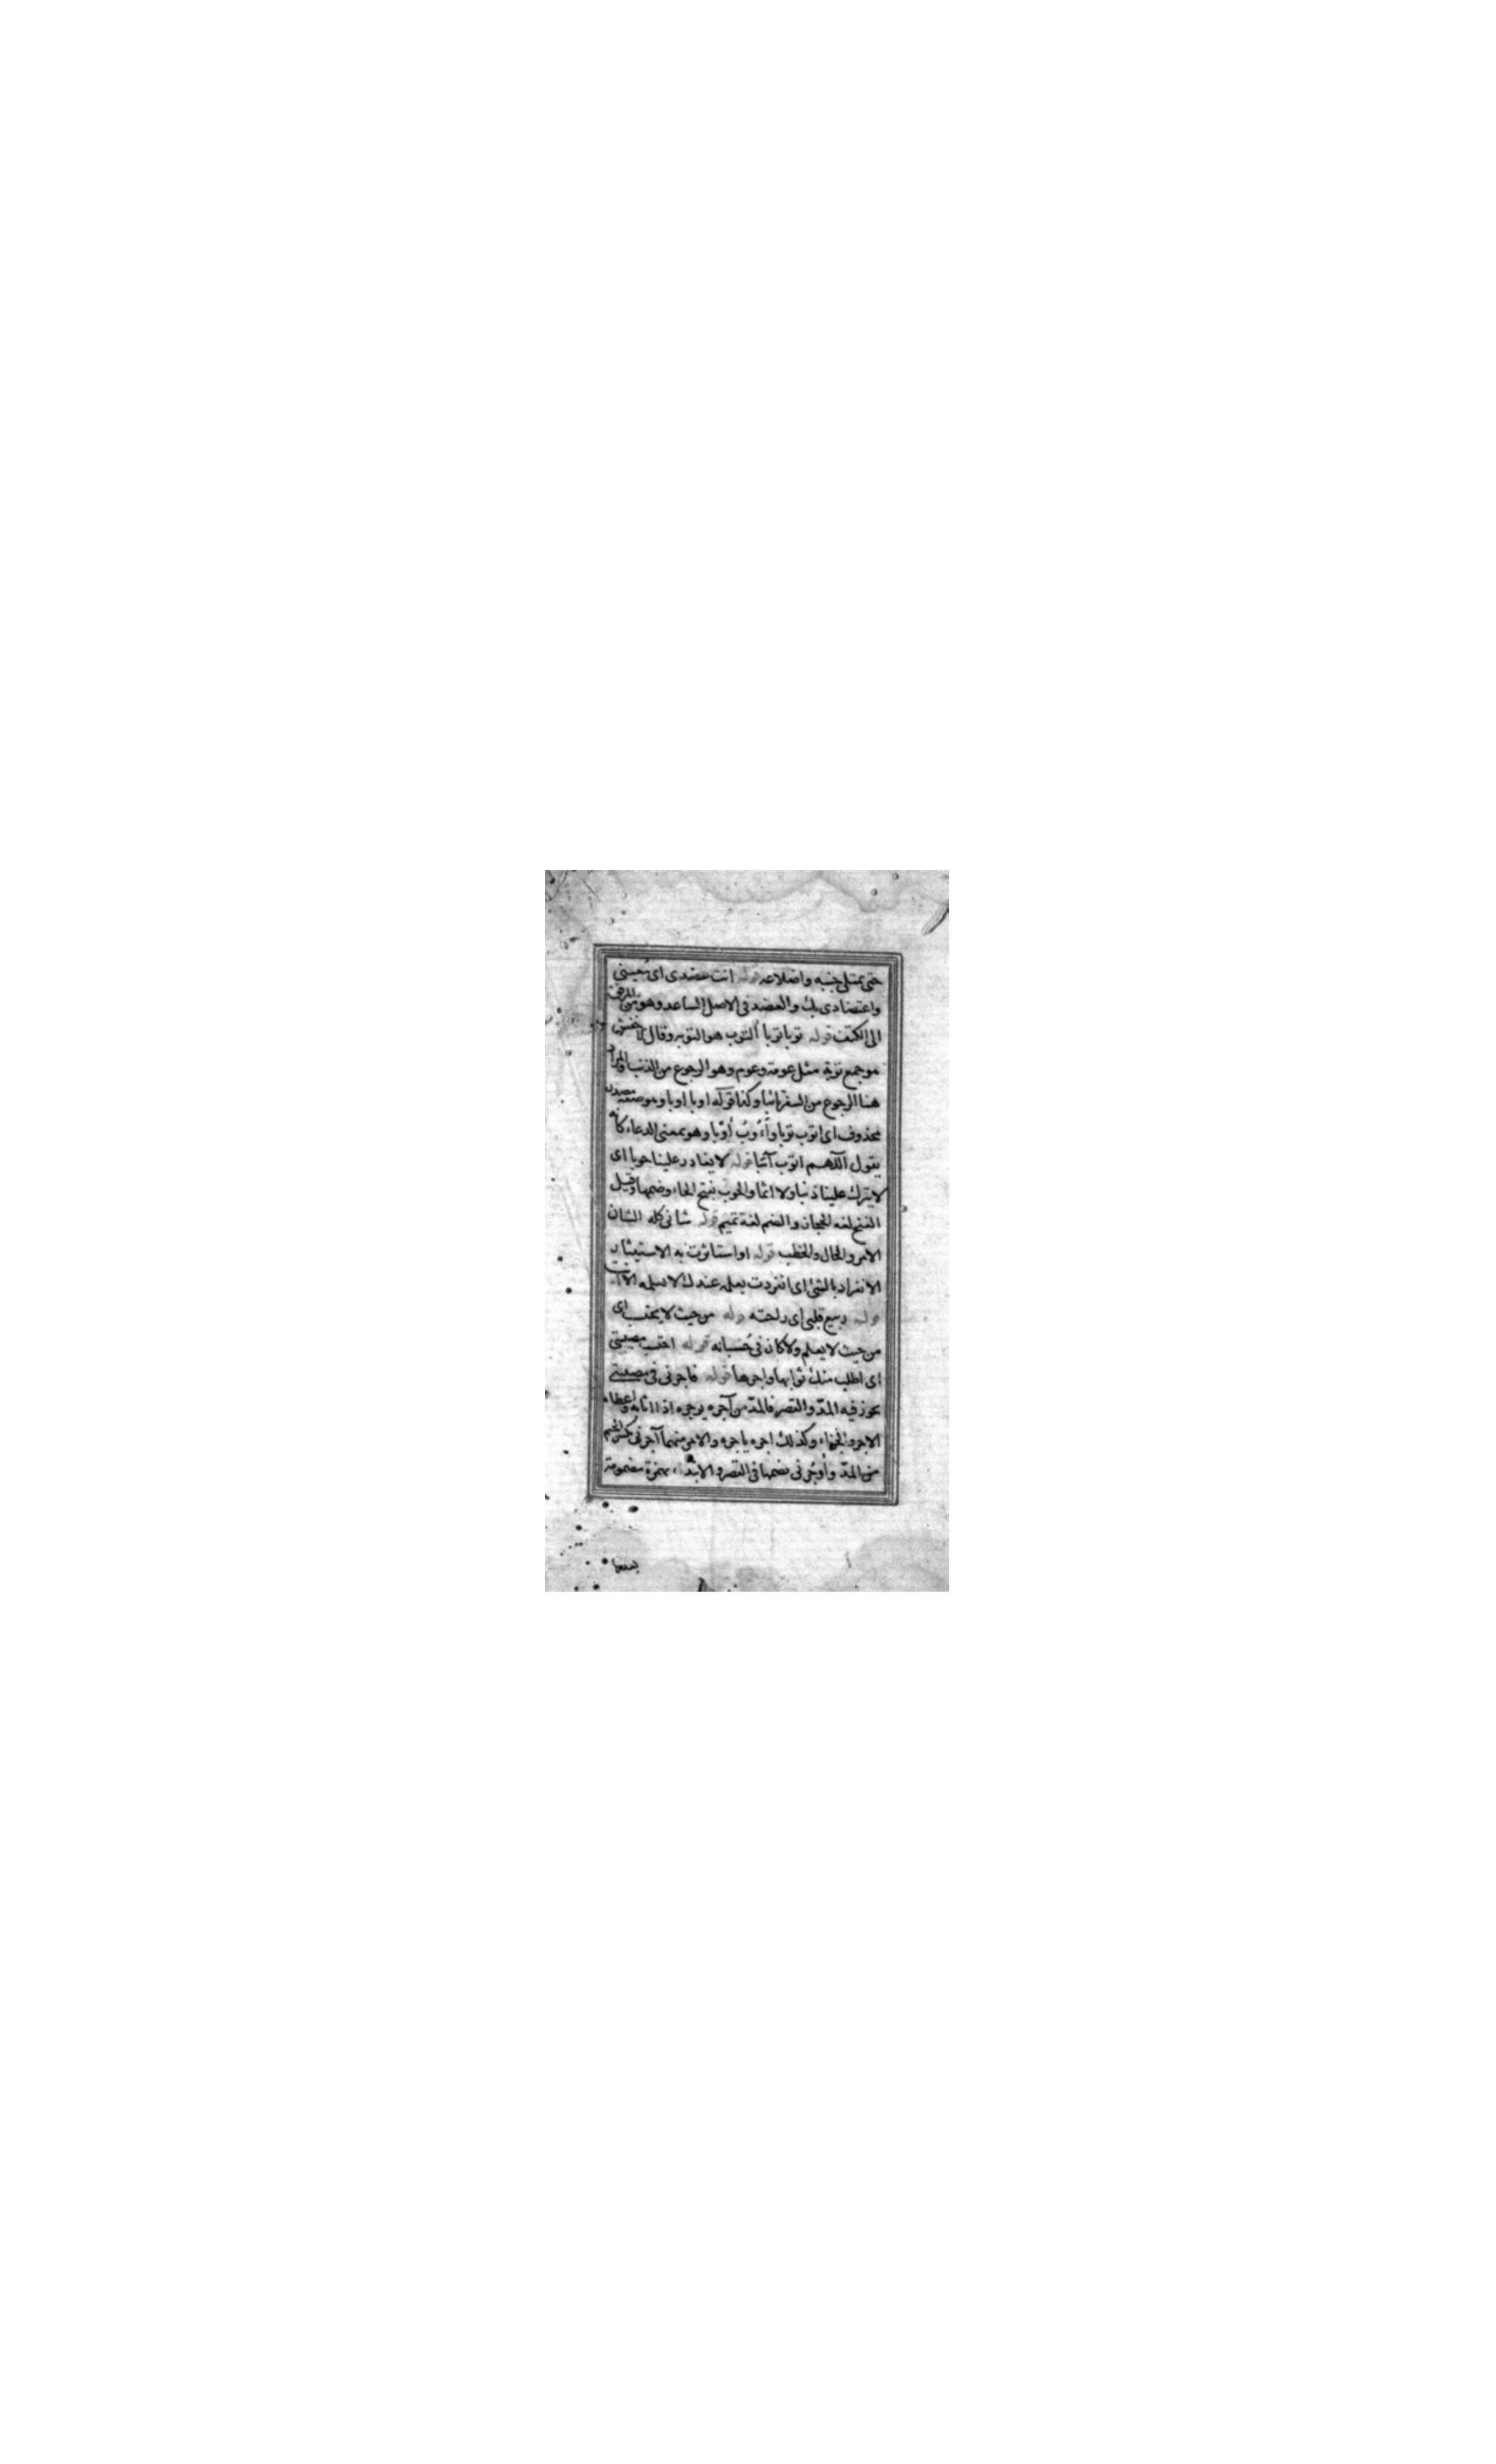 حتى يمتلى جنبه واضلاعه قوله انت عضدى اى معينى
واعتضادى بك والعضد فى الاصل الساعد وهو من المرفق
الى الكتف قوله توبا توبا التوب هو التوبه وقال الاخفش
هو جمع توبة مثل عومة وعوم وهو الرجوع من الذنب والمراد
هنا الرجوع من السفر تائبا وكذا قوله اوبا اوبا وهو صفة مصدر
محذوف اى اتوب توبا وأءوب أوبا وهو بمعنى الدعاء كانه
يقول اللهم اتوب آئبا قوله لا يغادر علينا حوبا اى
لا يترك علينا ذنبا ولا اثما والحوب بفتح الحاء وضمها وقيل
الفتح لغه الحجاز والضم لغة تميم قوله شانى كله الشان
الامر والحال والخطب قوله او استاثرت به الاستيثار
الانفراد بالشئ اى انفردت بعلمه عندك لا يعلمه الا انت
قوله ربيع قلبى اى راحته قوله من حيث لا يحتسب اى
من حيث لا يعلم ولا كان فى حسبانه قوله احتسب مصيبتى
اى اطلب منك ثوابها واجرها قوله فاجرنى فى مصيبتى
يجوز فيه المد والقصر فالمد من آجره يوجره اذا اثابه واعطاه
الاجر والجزاء وكذلك اجره ياجره والامر منهما آجرنى بكسر الجيم
من المد وأوجرنى بضمها فى القصر والابتداء بهمزة مضمومة